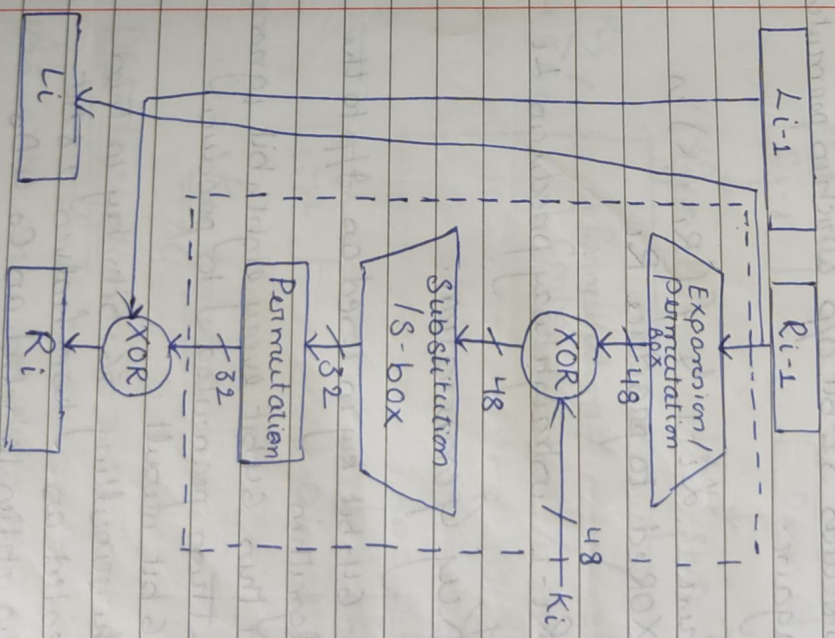 Li-1
Ri-1
Expansion/
permutation
Box
48
XOR
48
Ki
48
Substitution
/S-box
32
Permutation
32
XOR
Li
Ri